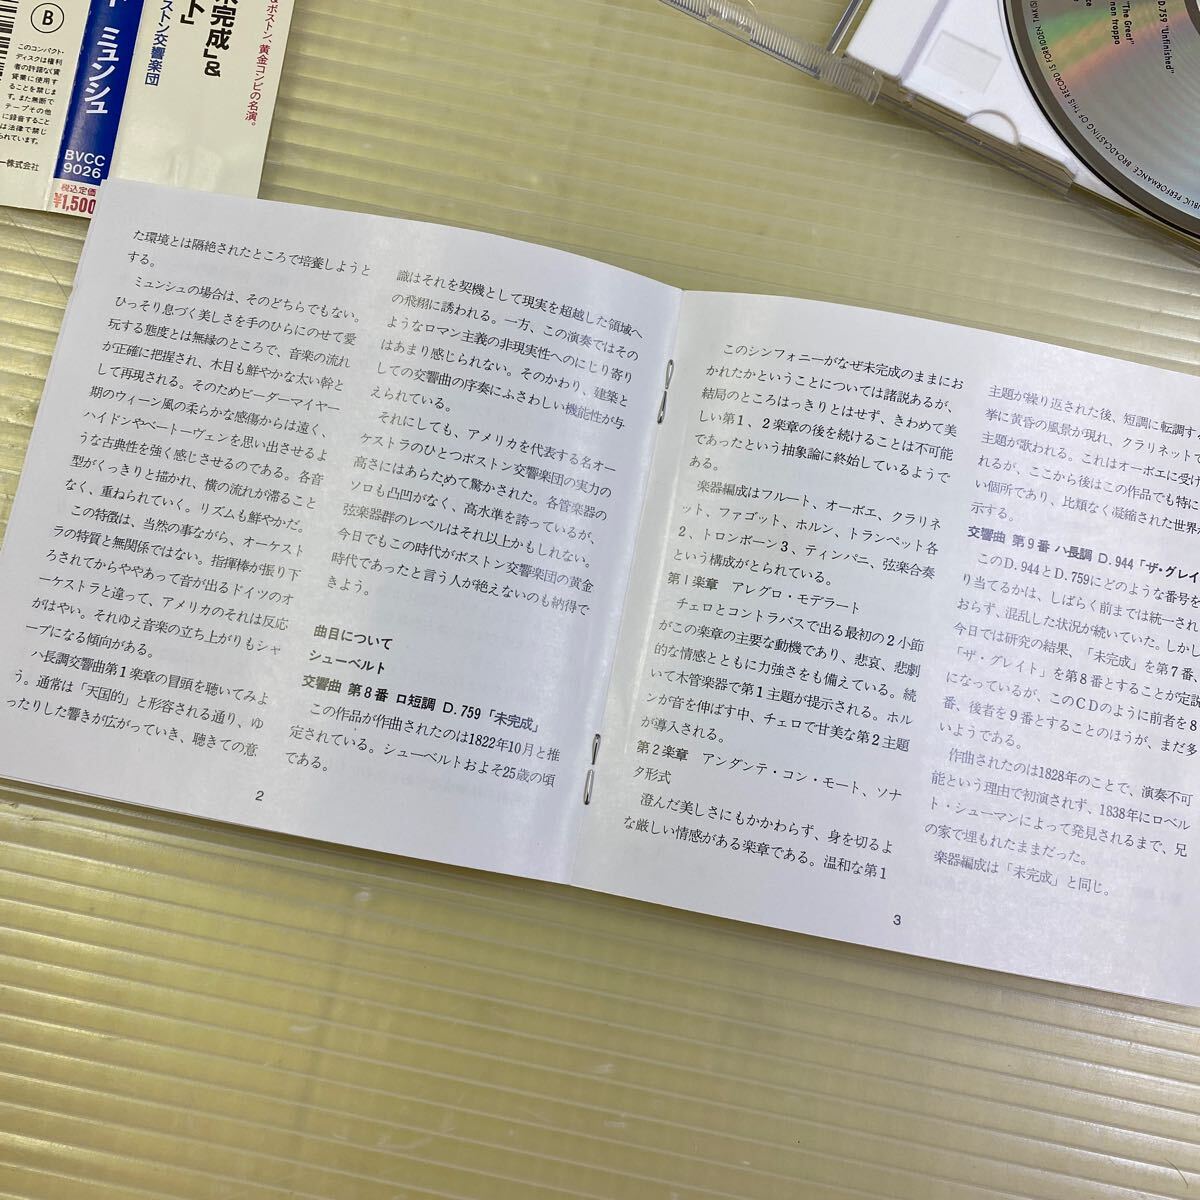 B
このコンパクト・
ディスクは権利
者の許諾なく賃
貸業に使用す
ることを禁じま
す。また無断で
テープその他
に録音すること
は法律で禁じ
られています。
ー株式会社
ミュンシュ
BVCC
9026
税込定価
¥1,500
未完成」&
ト」
ストン交響楽団
&ボストン、黄金コンビの名演。
D.759 "Unfinished"
"The Great"
non troppo
PUBLIC PERFORMANCE BROADCASTING OF THIS RECORD IS FORBIDDEN.
た環境とは隔絶されたところで培養しようと
する。
ミュンシュの場合は、そのどちらでもない。
ひっそり息づく美しさを手のひらにのせて愛
玩する態度とは無縁のところで、音楽の流れ
が正確に把握され、木目も鮮やかな太い幹と
して再現される。そのためビーダーマイヤー
期のウィーン風の柔らかな感傷からは遠く、
ハイドンやベートーヴェンを思い出させるよ
うな古典性を強く感じさせるのである。各音
型がくっきりと描かれ、横の流れが滞ること
なく、重ねられていく。リズムも鮮やかだ。
この特徴は、当然の事ながら、オーケスト
ラの特質と無関係ではない。指揮棒が振り下
ろされてからややあって音が出るドイツのオ
ーケストラと違って、アメリカのそれは反応
がはやい。それゆえ音楽の立ち上がりもシャ
ープになる傾向がある。
ハ長調交響曲第1楽章の冒頭を聴いてみよ
う。通常は「天国的」と形容される通り、ゆ
ったりした響きが広がっていき、聴きての意
2
識はそれを契機として現実を超越した領域へ
の飛翔に誘われる。一方、この演奏ではその
ようなロマン主義の非現実性へのにじり寄り
はあまり感じられない。そのかわり、建築と
しての交響曲の序奏にふさわしい機能性が与
えられている。
それにしても、アメリカを代表する名オー
ケストラのひとつボストン交響楽団の実力の
高さにはあらためて驚かされた。各管楽器の
ソロも凸凹がなく、高水準を誇っているが、
弦楽器群のレベルはそれ以上かもしれない。
今日でもこの時代がボストン交響楽団の黄金
時代であったと言う人が絶えないのも納得で
きよう。
曲目について
シューベルト
交響曲 第8番 ロ短調 D.759「未完成」
この作品が作曲されたのは1822年10月と推
定されている。シューベルトおよそ25歳の頃
である。
このシンフォニーがなぜ未完成のままにお
かれたかということについては諸説あるが、
結局のところはっきりとはせず、きわめて美
しい第1、2楽章の後を続けることは不可能
であったという抽象論に終始しているようで
ある。
楽器編成はフルート、オーボエ、クラリネ
ット、ファゴット、ホルン、トランペット各
2、トロンボーン3、ティンパニ、弦楽合奏
という構成がとられている。
第1楽章 アレグロ・モデラート
チェロとコントラバスで出る最初の2小節
がこの楽章の主要な動機であり、悲哀、悲劇
的な情感とともに力強さをも備えている。続
いて木管楽器で第1主題が提示される。ホル
ンが音を伸ばす中、チェロで甘美な第2主題
が導入される。
第2楽章 アンダンテ・コン・モート、ソナ
タ形式
澄んだ美しさにもかかわらず、身を切るよ
な厳しい情感がある楽章である。温和な第1
3
主題が繰り返された後、短調に転調す
挙に黄昏の風景が現れ、クラリネットで
主題が歌われる。これはオーボエに受け
れるが、ここから後はこの作品でも特に
い個所であり、比類なく凝縮された世界
示する。
交響曲 第9番 ハ長調 D.944「ザ・グレイ
このD.944とD.759にどのような番号を
り当てるかは、しばらく前までは統一され
おらず、混乱した状況が続いていた。しかし
今日では研究の結果、「未完成」を第7番、
「ザ・グレイト」を第8番とすることが定説
になっているが、このCDのように前者を8
番、後者を9番とすることのほうが、まだ多
いようである。
作曲されたのは1828年のことで、演奏不可
能という理由で初演されず、1838年にロベル
ト・シューマンによって発見されるまで、兄
の家で埋もれたままだった。
楽器編成は「未完成」と同じ。